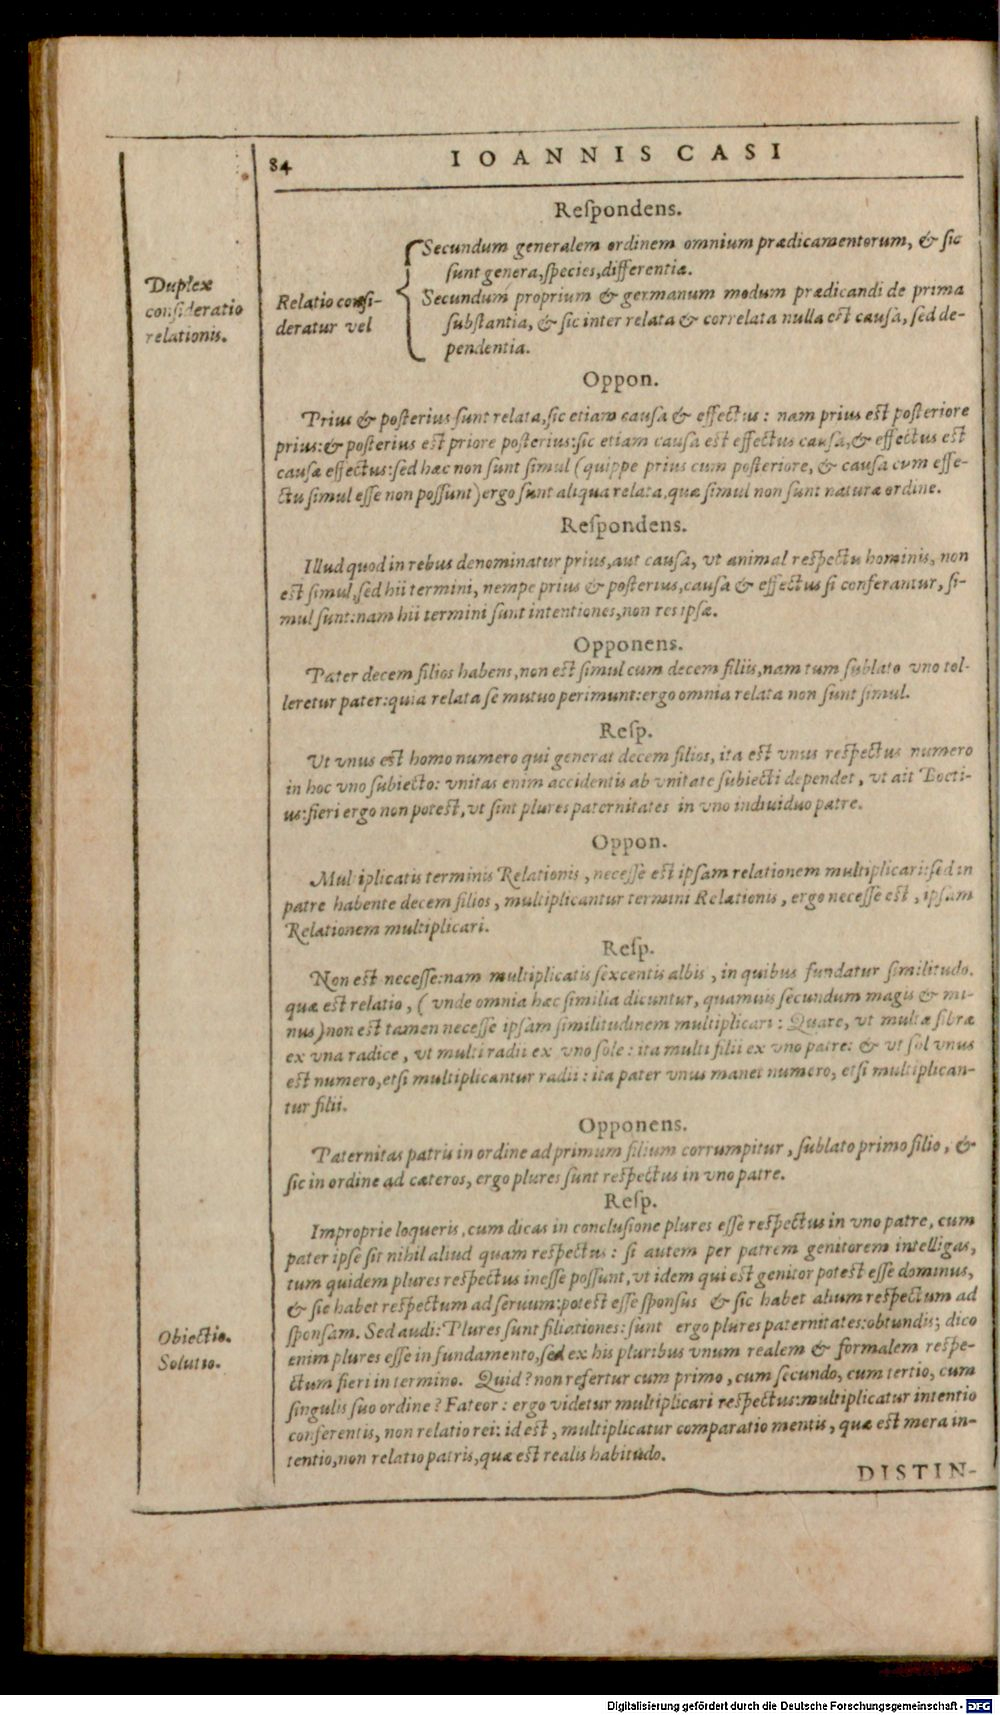 84
IOANNIS CASI
Reſpondens.
Duplex
conſideratio
relationis.
Relatio conſi-
deratur vel
Secundum generalem ordinem omnium prædicamentorum, & ſic
ſunt genera, ſpecies, differentiæ.
Secundum proprium & germanum modum prædicandi de prima
ſubſtantia, & ſic inter relata & correlata nulla eſt cauſa, ſed de-
pendentia.
Oppon.
Prius & poſterius ſunt relata, ſic etiam cauſa & effectus: nam prius eſt poſteriore
prius: & poſterius eſt priore poſterius: ſic etiam cauſa eſt effectus cauſa, & effectus eſt
cauſæ effectus: ſed hæc non ſunt ſimul (quippe prius cum poſteriore, & cauſa cum effe-
ctu ſimul eſſe non poſſunt) ergo ſunt aliqua relata, quæ ſimul non ſunt naturæ ordine.
Reſpondens.
Illud quod in rebus denominatur prius, aut cauſa, vt animal reſpectu hominis, non
eſt ſimul, ſed hii termini, nempe prius & poſterius, cauſa & effectus ſi conferantur, ſi-
mul ſunt: nam hii termini ſunt intentiones, non res ipſæ.
Opponens.
Pater decem filios habens, non eſt ſimul cum decem filiis, nam tum ſublato vno tol-
leretur pater: quia relata ſe mutuo perimunt: ergo omnia relata non ſunt ſimul.
Reſp.
Ut vnus eſt homo numero qui generat decem filios, ita eſt vnus reſpectus numero
in hoc vno ſubiecto: vnitas enim accidentis ab vnitate ſubiecti dependet, vt ait Boeti-
us: fieri ergo non poteſt, vt ſint plures paternitates in vno indiuiduo patre.
Oppon.
Multiplicatis terminis Relationis, neceſſe eſt ipſam relationem multiplicari: ſed in
patre habente decem filios, multiplicantur termini Relationis, ergo neceſſe eſt, ipſam
Relationem multiplicari.
Reſp.
Non eſt neceſſe: nam multiplicatis ſexcentis albis, in quibus fundatur ſimilitudo,
quæ eſt relatio, (vnde omnia hæc ſimilia dicuntur, quamuis ſecundum magis & mi-
nus) non eſt tamen neceſſe ipſam ſimilitudinem multiplicari: Quare, vt multæ fibræ
ex vna radice, vt multi radii ex vno ſole: ita multi filii ex vno patre: & vt ſol vnus
eſt numero, etſi multiplicantur radii: ita pater vnus manet numero, etſi multiplican-
tur filii.
Opponens.
Paternitas patris in ordine ad primum filium corrumpitur, ſublato primo filio, &
ſic in ordine ad cæteros, ergo plures ſunt reſpectus in vno patre.
Reſp.
Improprie loqueris, cum dicas in concluſione plures eſſe reſpectus in vno patre, cum
pater ipſe ſit nihil aliud quam reſpectus: ſi autem per patrem genitorem intelligas,
tum quidem plures reſpectus ineſſe poſſunt, vt idem qui eſt genitor poteſt eſſe dominus,
& ſic habet reſpectum ad ſeruum: poteſt eſſe ſponſus & ſic habet alium reſpectum ad
Obiectio.
Solutio.
ſponſam. Sed audi: Plures ſunt filiationes: ſunt ergo plures paternitates: obtundis; dico
enim plures eſſe in fundamento, ſed ex his pluribus vnum realem & formalem reſpe-
ctum fieri in termino. Quid? non refertur cum primo, cum ſecundo, cum tertio, cum
ſingulis ſuo ordine? Fateor: ergo videtur multiplicari reſpectus: multiplicatur intentio
conferentis, non relatio rei: id eſt, multiplicatur comparatio mentis, quæ eſt mera in-
tentio, non relatio patris, quæ eſt realis habitudo.
DISTIN-
Digitalisierung gefördert durch die Deutsche Forschungsgemeinschaft - DFG